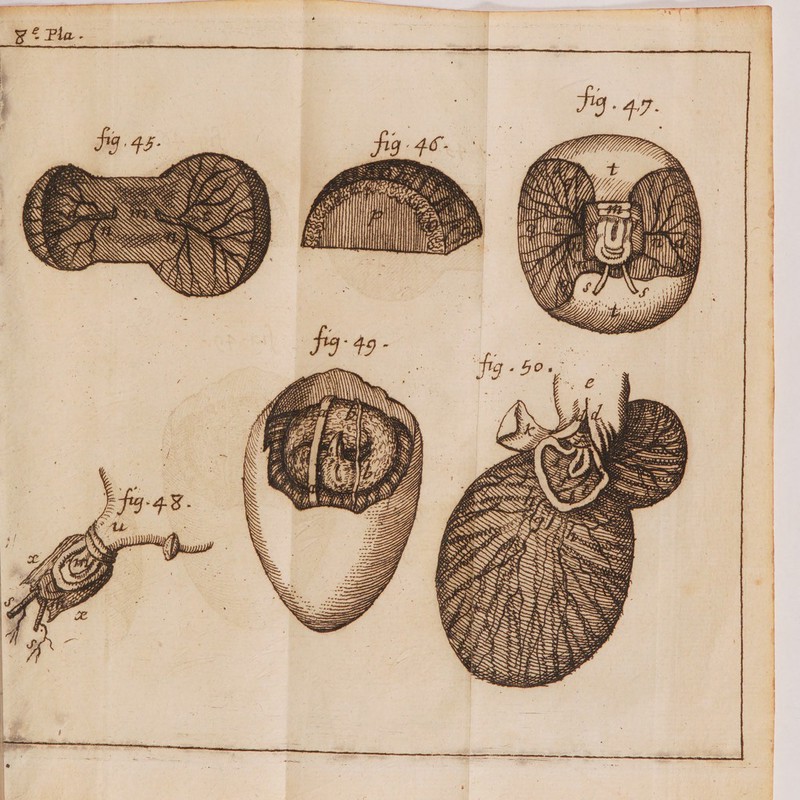 8e. Pla.
fig. 45.
fig. 46.
fig. 47.
m
n
n
p
t
m
s
s
t
fig. 49.
fig. 50.
e
d
k
b
fig. 48.
u
x
m
s
x
s